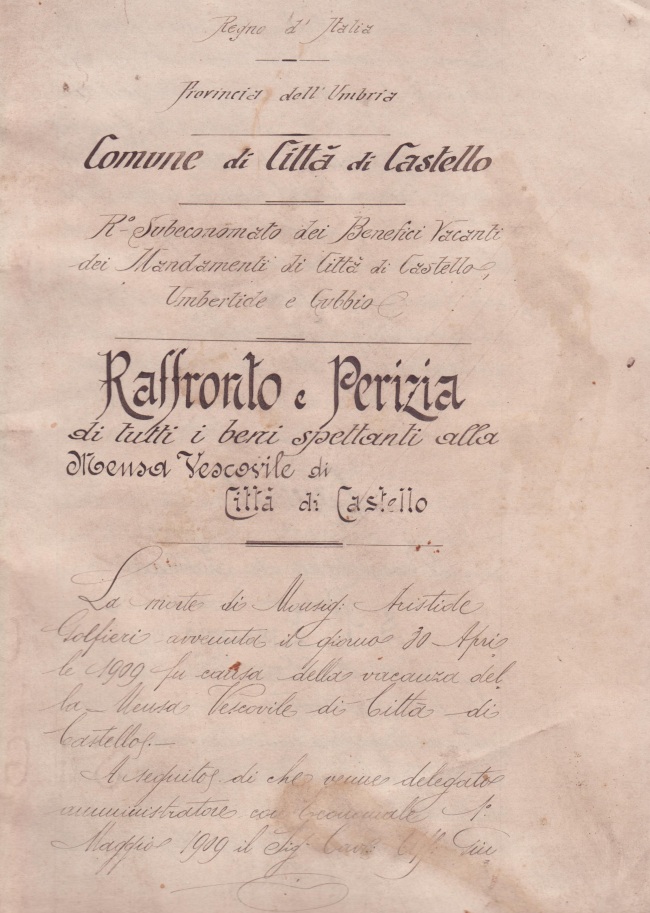 Regno d' Italia
Provincia dell' Umbria
Comune di Città di Castello
R.º Subeconomato dei Benefici Vacanti
dei Mandamenti di Città di Castello,
Umbertide e Gubbio
Raffronto e Perizia
di tutti i beni spettanti alla
Mensa Vescovile di
Città di Castello
La morte di Monsig: Aristide
Golfieri avvenuta il giorno 30 Apri
le 1909 fu causa della vacanza del
la Mensa Vescovile di Città di
Castello.—
A seguito di che venne delegato
amministratore con 1º
Maggio 1909 il Sig. Cav: Uff.